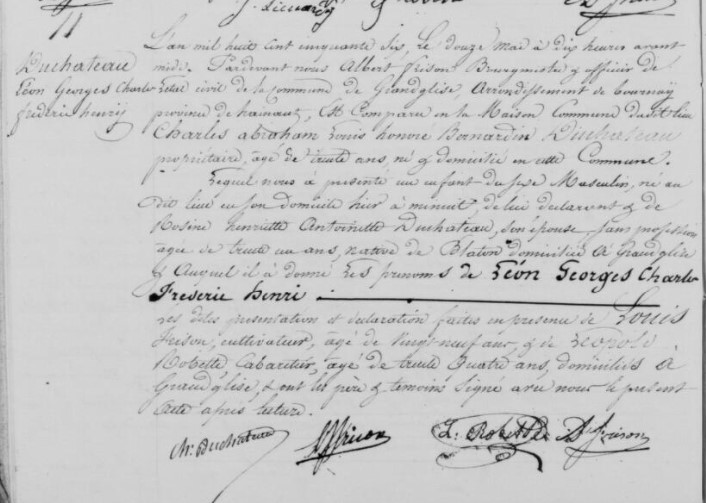 11
Duchateau
Léon Georges Charles
fréderic henry
L'an mil huit cent cinquante six, Le douze mai à dix heures avant
midi. Pardevant nous Albert frison Bourgmestre & officier de
L'etat civil de la Commune de Grandglise, Arrondissement de tournay
province de hainaut, Est Comparu en la Maison Commune dudit lieu
Charles abraham Louis honoré Bernardin Duchateau
propriétaire, agé de trente ans, né & domicilié en cette Commune.
Lequel nous à présenté un enfant du sexe Masculin, né au
dit lieu en son domicile hier à minuit, de lui declarant & de
Rosine henriette Antoinette Duchateau, son épouse, sans profession
agée de trente un ans, native de Blaton domiciliée à Grandglise
& Auquel il à donné Les prenoms de Léon Georges Charles
Fréderic henri
Les dites presentation et declaration faites en presence de Louis
frison, cultivateur, agé de vingt neuf ans, & de Leopold
Robette Cabaretier, agé de trente quatre ans, domiciliés à
Grandglise, & ont les père & temoins Signé avec nous le present
Acte après lecture.
Ch. Duchateau
L. Robette
A. frison